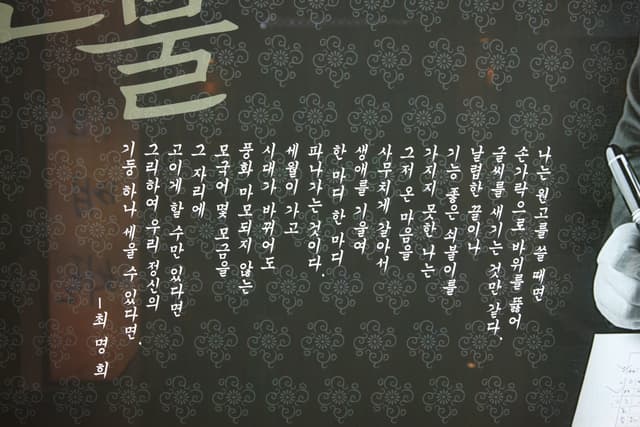 불
나는 원고를 쓸 때면
손가락으로 바위를 뚫어
글씨를 새기는 것만 같다.
날렵한 끌이나
기능 좋은 쇠붙이를
가지지 못한 나는
그저 온 마음을
사무치게 갈아서
생애를 기울여
한 마디 한 마디
파나가는 것이다.
세월이 가고
시대가 바뀌어도
풍화 마모되지 않는
모국어 몇 모금을
그 자리에
고이게 할 수만 있다면
그리하여 우리 정신의
기둥 하나 세울 수 있다면.
-최명희